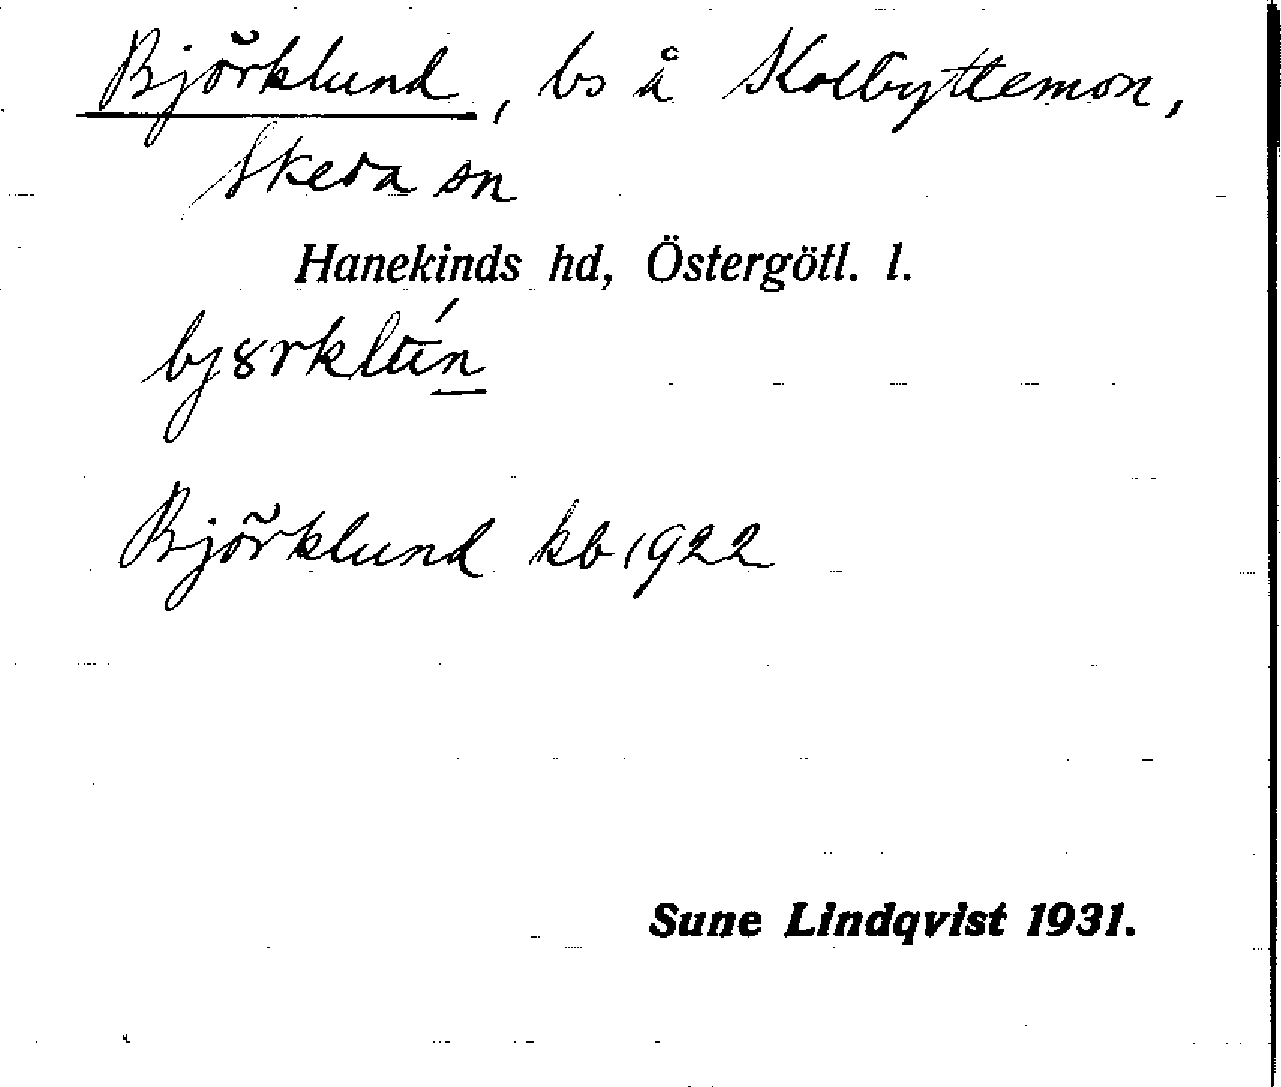 Björklund, bs å Kolbyttemon,
Skeda sn
Hanekinds hd, Östergötl. l.
Björklund kb 1922
Sune Lindqvist 1931.